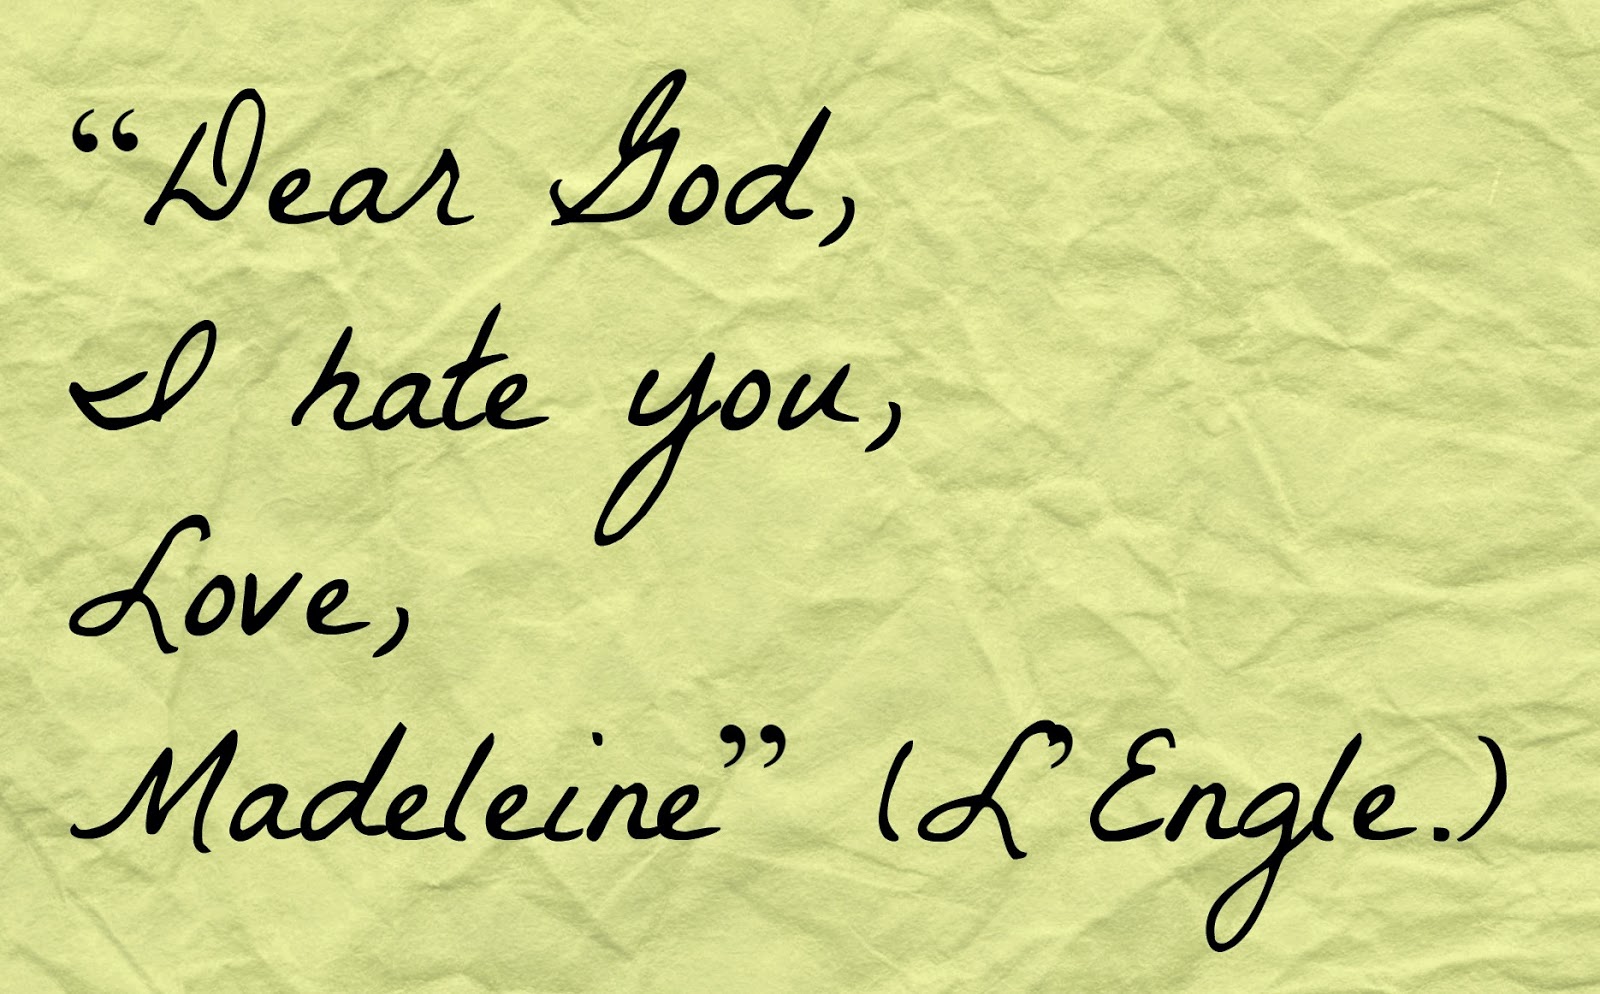 “Dear God,
I hate you,
Love,
Madeleine” (L’Engle.)